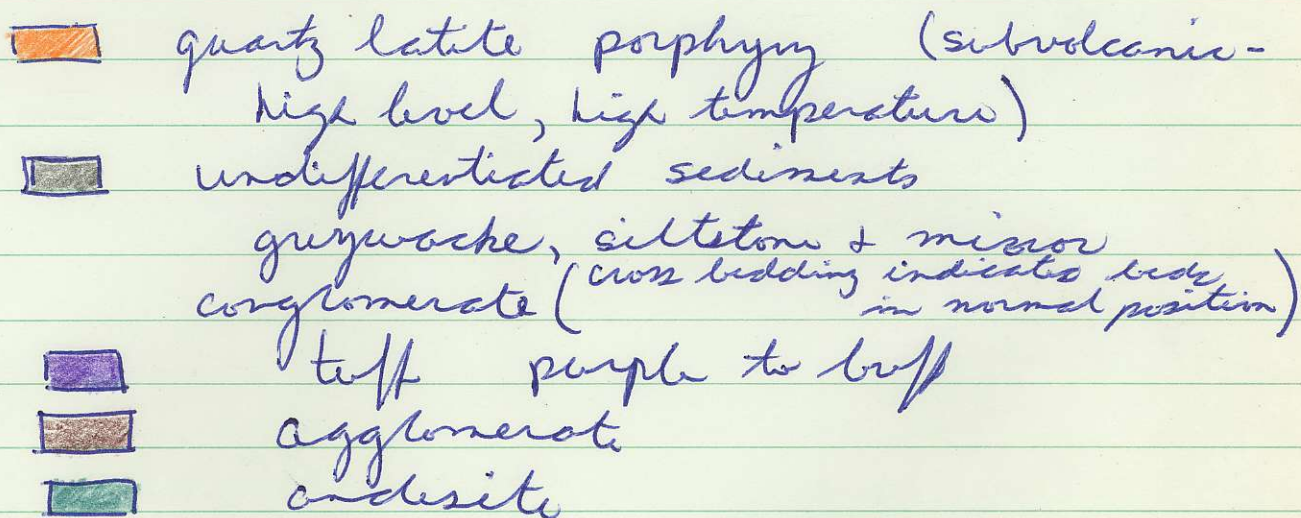 quartz latite porphyry (subvolcanic-
high level, high temperature)
undifferentiated sediments
greywacke, siltstone & minor
conglomerate (cross bedding indicates beds
in normal position)
tuff purple to buff
agglomerate
andesite